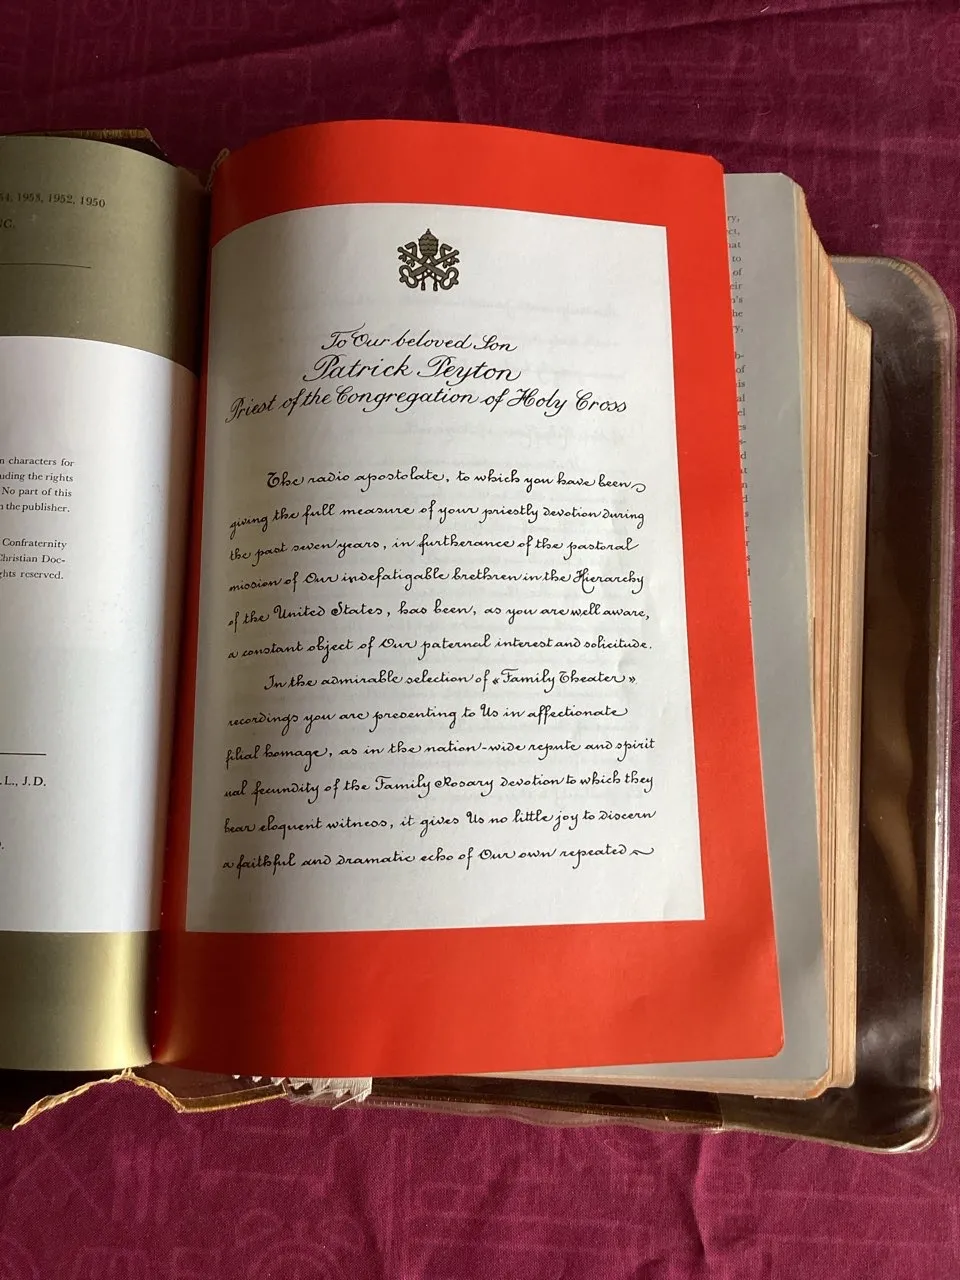 54, 1953, 1952, 1950
NC.
n characters for
uding the rights
No part of this
n the publisher.
Confraternity
Christian Doc-
ghts reserved.
.L., J.D.
To Our beloved Son
Patrick Peyton
Priest of the Congregation of Holy Cross
The radio apostolate, to which you have been
giving the full measure of your priestly devotion during
the past seven years, in furtherance of the pastoral
mission of Our indefatigable brethren in the Hierarchy
of the United States, has been, as you are well aware,
a constant object of Our paternal interest and solicitude.
In the admirable selection of «Family Theater»
recordings you are presenting to Us in affectionate
filial homage, as in the nation-wide repute and spirit
ual fecundity of the Family Rosary devotion to which they
bear eloquent witness, it gives Us no little joy to discern
a faithful and dramatic echo of Our own repeated
ry,
ct,
hat
to
of
eir
n's
he
ry,
b-
of
is
al
el
es
s-
d
at